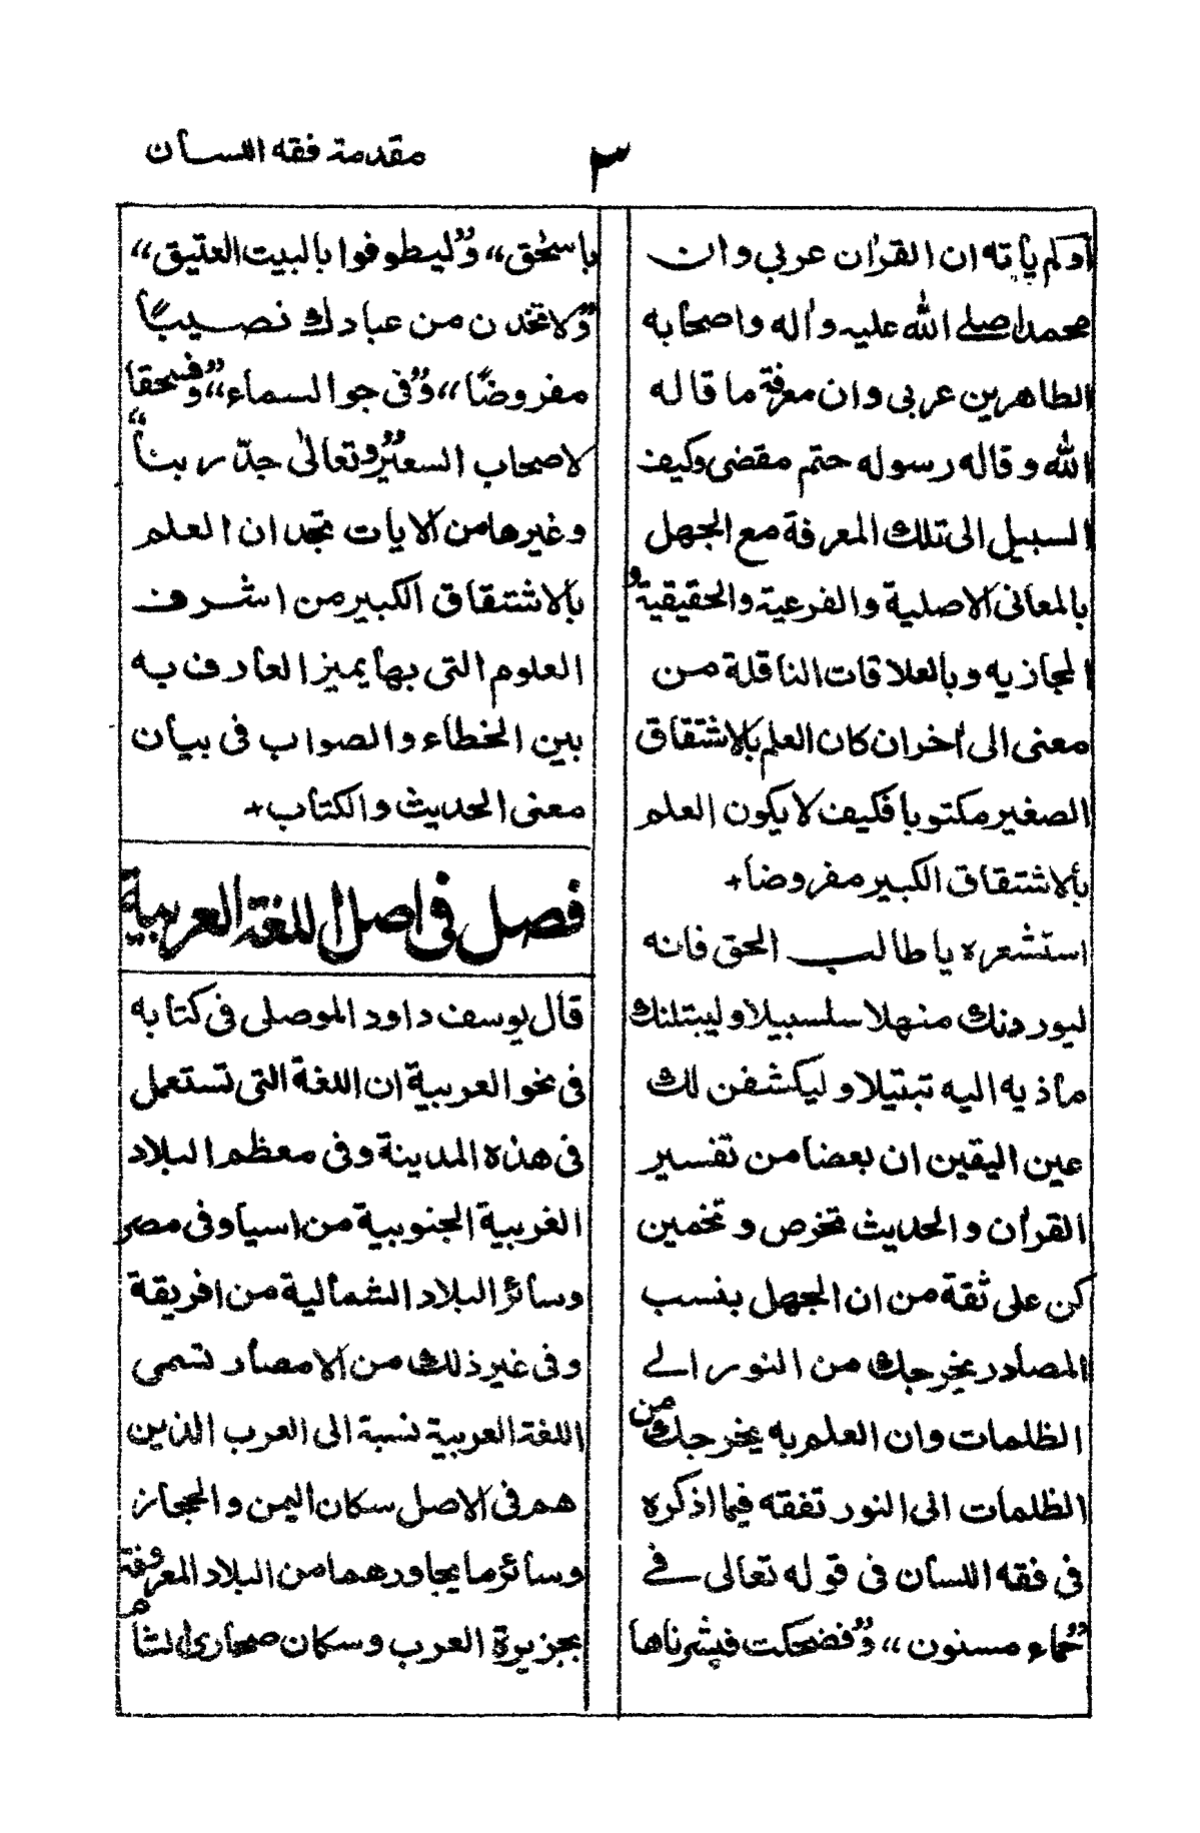 مقدمة فقه اللسان
٣
أولم يأته ان القرأن عربي وان
محمدا صلى الله عليه وأله واصحابه
الطاهرين عربى وان معرفة ما قاله
الله وقاله رسوله حتم مقضى وكيف
السبيل الى تلك المعرفة مع الجهل
بالمعانى الاصلية والفرعية والحقيقية و
المجازيه وبالعلاقات الناقلة من
معنى الى أخران كان العلم بالاشتقاق
الصغير مكتوبا فكيف لا يكون العلم
بالاشتقاق الكبير مفروضا+
استشعره يا طالب الحق فانه
ليوردنك منهلا سلسبيلا وليبتلنك
مأذيه اليه تبتيلا وليكشفن لك
عين اليقين ان بعضا من تفسير
القرأن والحديث تخرص وتخمين
كن على ثقة من ان الجهل بنسب
المصادر يخرجك من النور الى
الظلمات وان العلم به يخرجك من
الظلمات الى النور تفقه فيما اذكره
فى فقه اللسان فى قوله تعالى فى
”حماء مسنون“ و”فضحكت فبشرناها
باسحٰق“ و”ليطوفوا بالبيت العتيق“
و”لاتخذن من عبادك نصيبًا
مفروضًا“ و”فى جو السماء“ و”فسحقا
لاصحاب السعير“ و”تعالىٰ جدّ ربنا“
وغيرها من الايات تجد ان العلم
بالاشتقاق الكبير من اشرف
العلوم التى بها يميز العارف به
بين الخطاء والصواب فى بيان
معنى الحديث والكتاب+
فصل فى اصل اللغة العربية
قال يوسف داود الموصلى فى كتابه
فى نحو العربية ان اللغة التى تستعمل
فى هذه المدينة وفى معظم البلاد
الغربية الجنوبية من اسيا وفى مصر
وسائر البلاد الشمالية من افريقة
وفى غير ذلك من الامصار تسمى
اللغة العربية نسبة الى العرب الذين
هم فى الاصل سكان اليمن والحجاز
وسائر ما يجاورهما من البلاد المعروفة
بجزيرة العرب وسكان صحارى الشام